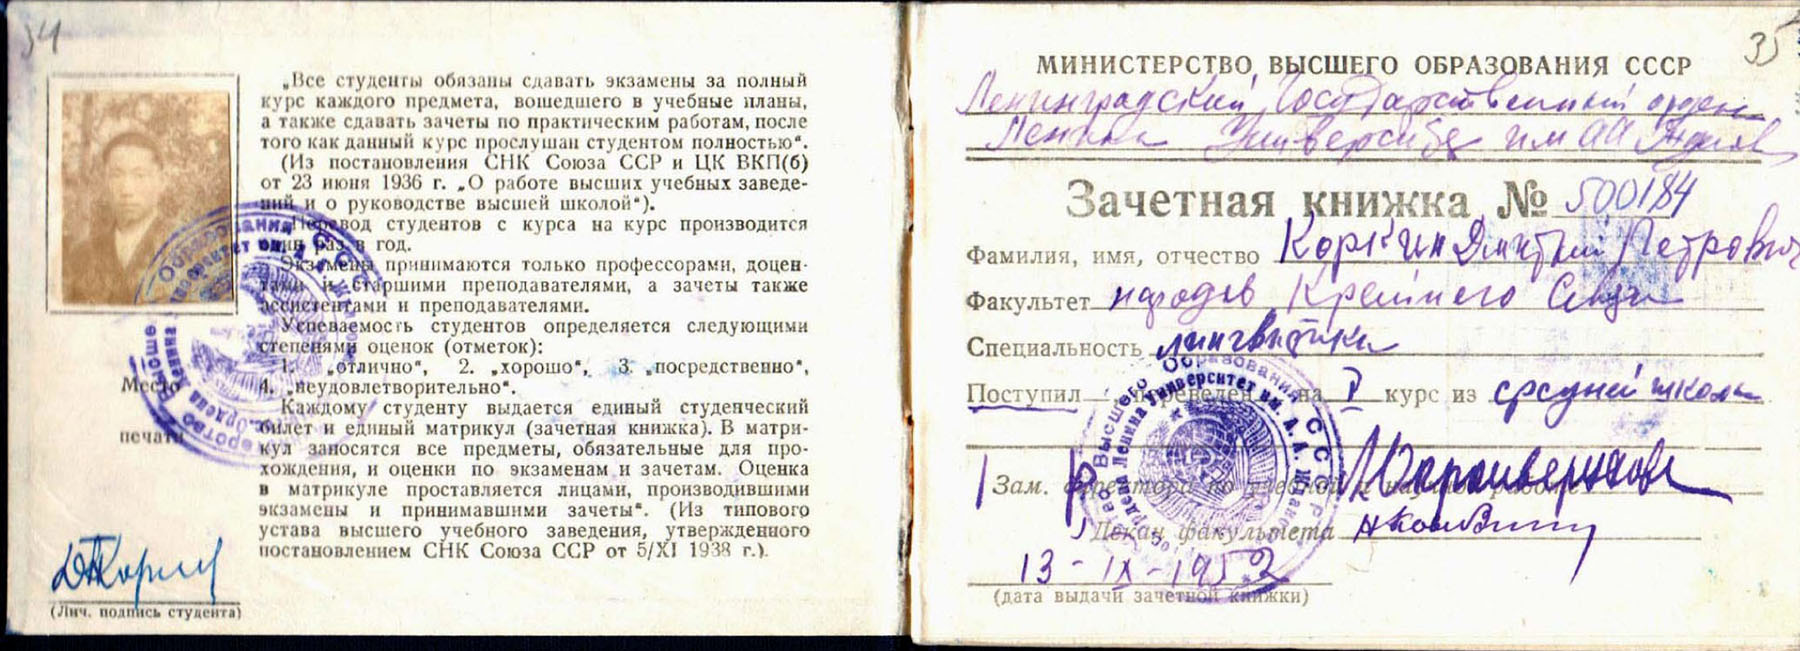 34
„Все студенты обязаны сдавать экзамены за полный
курс каждого предмета, вошедшего в учебные планы,
а также сдавать зачеты по практическим работам, после
того как данный курс прослушан студентом полностью“.
(Из постановления СНК Союза ССР и ЦК ВКП(б)
от 23 июня 1936 г. „О работе высших учебных заведе-
ний и о руководстве высшей школой“).
Перевод студентов с курса на курс производится
один раз в год.
Экзамены принимаются только профессорами, доцен-
тами и старшими преподавателями, а зачеты также
ассистентами и преподавателями.
Успеваемость студентов определяется следующими
степенями оценок (отметок):
1. „отлично“, 2. „хорошо“, 3. „посредственно“,
4. „неудовлетворительно“.
Каждому студенту выдается единый студенческий
билет и единый матрикул (зачетная книжка). В матри-
кул заносятся все предметы, обязательные для про-
хождения, и оценки по экзаменам и зачетам. Оценка
в матрикуле проставляется лицами, производившими
экзамены и принимавшими зачеты“. (Из типового
устава высшего учебного заведения, утвержденного
постановлением СНК Союза ССР от 5/XI 1938 г.).
Место
печати
(Лич. подпись студента)
35
МИНИСТЕРСТВО ВЫСШЕГО ОБРАЗОВАНИЯ СССР
Ленинградский Государственный ордена
Ленина Университет им АА Жданова
Зачетная книжка № 500184
Фамилия, имя, отчество Коркин Дмитрий Петрович
Факультет народов Крайнего Севера
Специальность лингвистика
Поступил переведен на I курс из средней школы
Зам. директора по учебной и научной работе
Декан факультета
13-IX-1952
(дата выдачи зачетной книжки)